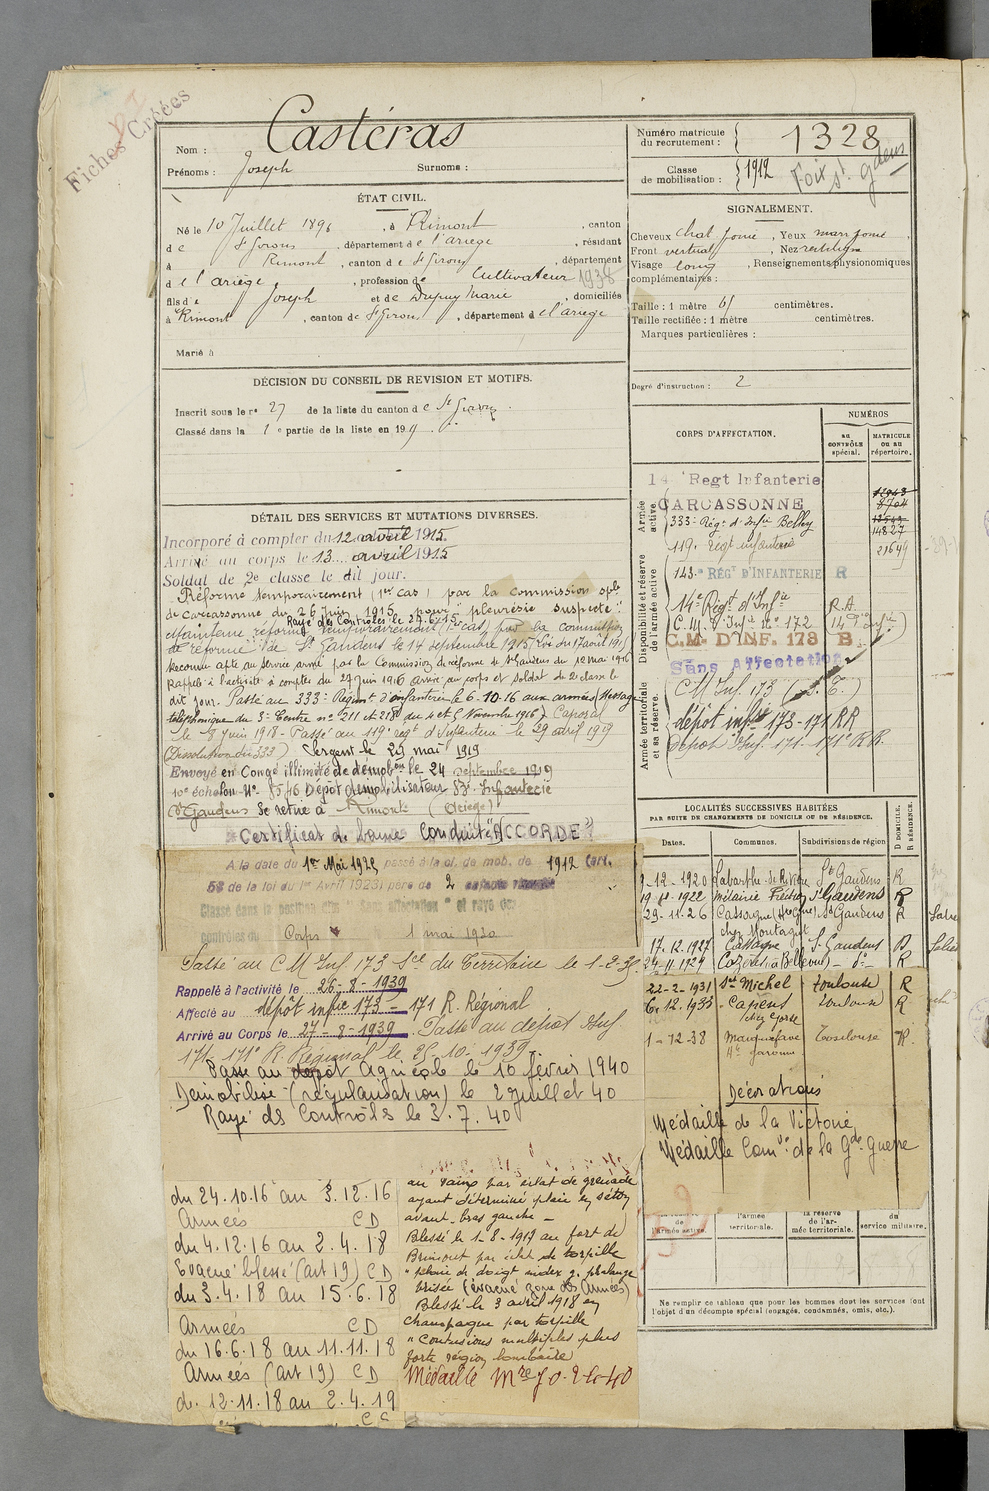 Fiches Créées
Nom : Castéras
Prénoms : Joseph Surnoms :
ÉTAT CIVIL.
Né le 10 Juillet 1896, à Rimont, canton
de St Girons, département de l'ariège, résidant
à Rimont, canton de St Girons, département
de l'ariège, profession de Cultivateur 1938
fils de Joseph et de Dupuy Marie, domiciliés
à Rimont, canton de St Girons, département de l'ariège
Marié à
DÉCISION DU CONSEIL DE REVISION ET MOTIFS.
Inscrit sous le n° 27 de la liste du canton de St Girons.
Classé dans la 1e partie de la liste en 191
DÉTAIL DES SERVICES ET MUTATIONS DIVERSES.
Incorporé à compter du 12 avril 1915.
Arrivé au corps le 13 avril 1915
Soldat de 2e classe le dit jour.
Réformé temporairement (1er cas) par la commission sple
de Carcassonne du 26 Juin 1915 pour "pleurésie suspecte"
Rayé des Contrôles le 27-6-15
Maintenu réformé temporairement (1er cas) par la commission
de réforme de St Gaudens le 14 septembre 1915 (Loi du 17 août 1915)
Reconnu apte au service armé par la Commission de réforme de St Gaudens du 12 mai 1916
Rappelé à l'activité à compter du 27 juin 1916 arrivé au corps et soldat de 2e classe le
dit jour. Passé au 333e Régimt d'infanterie le 6-10-16 aux armées (Stage
téléphonique du 3e Centre no 211 et 218 du 4 et 5 Novembre 1916) Caporal
le 8 Juin 1918 - Passé au 119e régt d'Infanterie le 29 avril 1919
(Dissolution du 333) Sergent le 29 mai 1919
Envoyé en Congé illimité de démobon le 24 septembre 1919
10e échelon - No 8546 Dépôt démobilisateur 83e Infanterie
St Gaudens Se retire à Rimont (Ariège)
Certificat de bonne Conduite "ACCORDÉ"
A la date du 1er Mai 1925 passé à la cl. de mob. de 1912 (art.
58 de la loi du 1er Avril 1923) père de 2 enfants
Classé dans la position dite "Sans affectation" et rayé des
contrôles du Corps 1 mai 1930
Passé au C M Inf. 173 Sce du Territoire le 1-2-
Rappelé à l'activité le 26-8-1939
Affecté au dépôt infie 173 - 171 R. Régional
Arrivé au Corps le 27-8-1939. Passé au dépôt Inf
171-171e R. Régional le 25-10-1939
Passé au dépôt Agricole le 10 février 1940
Démobilisé (régularisation) le 2 juillet 40
Rayé des Contrôles le 3.7.40
du 24.10.16 au 3.12.16
Armées CD
du 4.12.16 au 2.4.18
Evacué blessé (art 19) CD
du 3.4.18 au 15.6.18
Armées CD
du 16.6.18 au 11.11.18
Armées (art 19) CD
du 12.11.18 au 2.4.19
par éclat de grenade
ayant déterminé plaie en séton
avant-bras gauche -
Blessé le 1-8-1917 au fort de
Brimont par éclat de torpille
"plaie de doigt index g. phalange
brisée (évacué zone des Armées)
Blessé le 3 avril 1918 en
champagne par torpille
"Contusions multiples plus
forte région lombaire
Médaille Mre
Numéro matricule du recrutement : 1328
Classe de mobilisation : 1912
Voir St Gaudens
SIGNALEMENT.
Cheveux chat foncé, Yeux marr foncé,
Front vertical, Nez rectiligne
Visage long, Renseignements physionomiques
complémentaires :
Taille : 1 mètre 61 centimètres.
Taille rectifiée : 1 mètre centimètres.
Marques particulières :
Degré d'instruction : 2
CORPS D'AFFECTATION.
NUMÉROS
au CONTRÔLE spécial.
MATRICULE ou au répertoire.
Armée active.
14 Regt Infanterie
CARCASSONNE 8704
333e Rég. d'Infie Belley 14827
119e régt infanterie 21649
Disponibilité et réserve de l'armée active.
143e RÉGT D'INFANTERIE R
14e Régt d'Infie R.A.
C.M. d'Infie no 172 (14e d'Infie)
C.M. D'INF. 173 B.
Sans Affectation
Armée territoriale et sa réserve.
CM Inf. 173 (S.T.)
dépôt infie 173-171 RR
Dépôt Inf. 171-171e RR.
LOCALITÉS SUCCESSIVES HABITÉES
PAR SUITE DE CHANGEMENTS DE DOMICILE OU DE RÉSIDENCE.
Dates. Communes. Subdivisions de région D DOMICILE, R RÉSIDENCE.
9-12-1920 Labarthe-de-Rivière St Gaudens R
1922 Métairie St Gaudens R
29-11-26 Cassagne (Hte Gne) St Gaudens R
chez Montagut
17.12.1927 Cassagne St Gaudens R
1929 - do - R
22-2-1931 St Michel Toulouse R
6.12.1933 Cazères Toulouse R
1-12-38 Marquefave Toulouse R
Hte Garonne
Décorations
Médaille de la Victoire,
Médaille Comve de la Gde Guerre
l'armée active.
l'armée territoriale.
la réserve de l'armée territoriale.
du service militaire.
Ne remplir ce tableau que pour les hommes dont les services font
l'objet d'un décompte spécial (engagés, condamnés, omis, etc.).